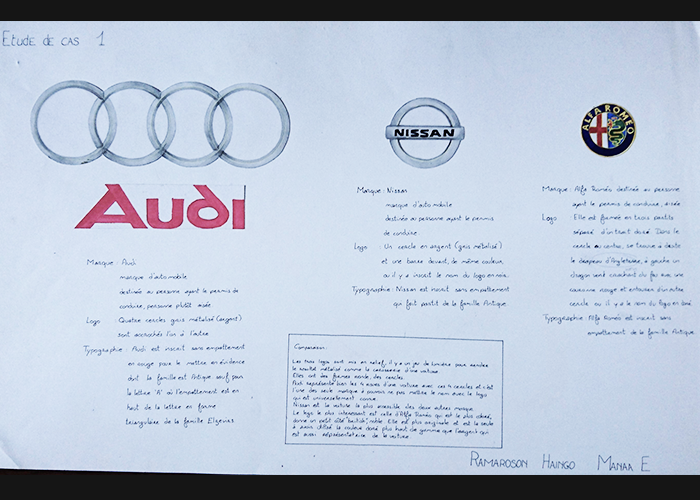 Etude de cas 1
Audi
NISSAN
ALFA ROMEO
Marque : Audi
marque d'automobile
destinée au personne ayant le permis de
conduire, personne plutôt aisée
Logo : Quatres cercles gris métalisé (argent)
sont accrochés l'un à l'autre
Typographie : Audi est inscrit sans empattement
en rouge pour le mettre en évidence
dont la famille est Antique sauf pour
la lettre "A" où l'empattement est en
haut de la lettre en forme
triangulaire de la famille Elzévirs
Marque : Nissan
marque d'automobile
destinée au personne ayant le permis
de conduire
Logo : Un cercle en argent (gris métalisé)
et une barre devant, de même couleur,
où il y a inscrit le nom du logo en noir.
Typographie : Nissan est inscrit sans empattement
qui fait partit de la famille Antique.
Marque : Alfa Roméo destinée au personne
ayant le permis de conduire, aisée
Logo : Elle est formée en trois partits
séparé d'un trait doré. Dans le
cercle au centre, se trouve à droite
le drapeau d'Angleterre, à gauche un
dragon vert crachant du feu avec une
couronne rouge et entourer d'un autre
cercle où il y a le nom du logo en doré.
Typographie : Alfa Roméo est inscrit sans
empattement de la famille Antique.
Comparaison :
Les trois logos sont mis en relief, il y a un jeu de lumière pour rendre
le résultat métalisé comme la carrosserie d'une voiture.
Elles ont des formes ronde, des cercles.
Audi représente bien les 4 roues d'une voiture avec ces 4 cercles et c'est
l'une des seule marque à pouvoir ne pas mettre le nom avec le logo
qui est universellement connue.
Nissan est la voiture la plus accessible des deux autres marque.
Le logo le plus intéressant est celle d'Alfa Roméo qui est le plus coloré,
donne un petit côté "british", noble. Elle est plus originale et est la seule
à avoir utilisé la couleur doré plus haut de gamme que l'argent qui
est aussi représentatrice de la voiture.
RAMAROSON HAINGO MANAA E